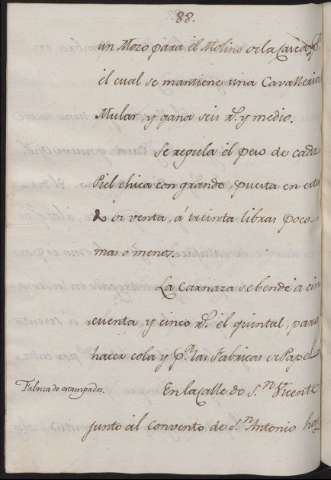 88.
un Mozo para el Molino de la
el cual se mantiene una Cavalleria
Mular, y gana seis r.s y medio.
Se regula el peso de cada
Piel chica con grande, puesta en esta
do de venta, á treinta libras poco
mas ó menos.
La Carnaza se bende á cin
cuenta y cinco r.s el quintal, para
hacer cola y p.a las Fabricas de Papel.
Fabrica de estampados.
En la Calle de S.n Vicente
junto al Convento de S.n Antonio